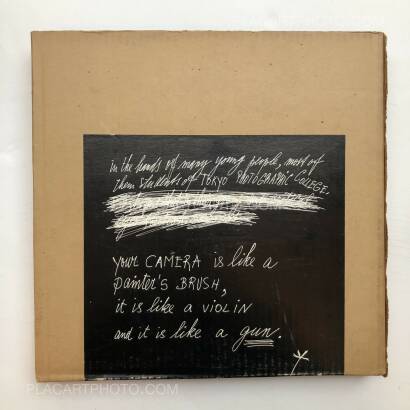 in the hands of many young people, most of
them students of TOKYO PHOTOGRAPHIC COLLEGE.
YOUR CAMERA is like a
painter's BRUSH,
it is like a VIOLIN
and it is like a gun.
PLACARTPHOTO.COM